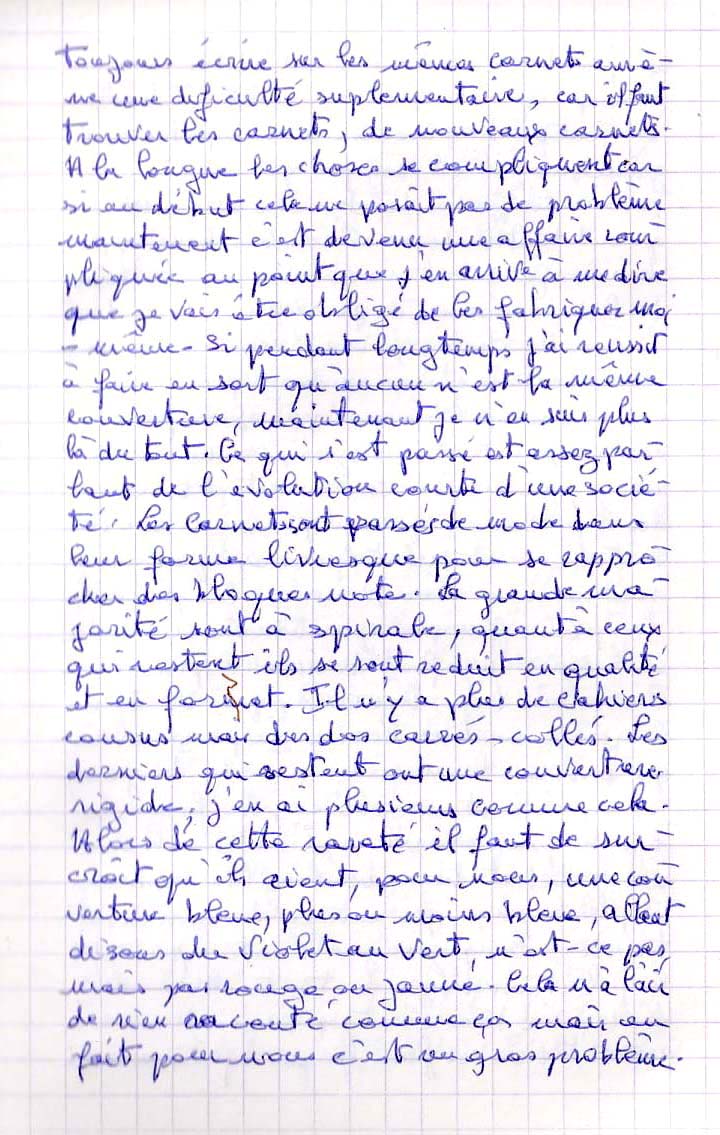 Toujours écrire sur les mêmes carnets amè-
ne une dificulté suplementaire, car il faut
trouver les carnets, de nouveaux carnets.
A la longue les choses se compliquent car
si au début cela ne posait pas de problème
maintenant c'est devenu une affaire com
pliquée au point que j'en arrive à me dire
que je vais être obligé de les fabriquer moi
-même. Si pendant longtemps j'ai reussit
à faire en sort qu'aucun n'est la même
couverture, maintenant je n'en suis plus
là du tout. Ce qui s'est passé est assez par-
lant de l'évolution courte d'une socié-
té. Les carnets sont passés de mode dans
leur forme livresque pour se rappro-
cher des bloques note. La grande ma-
jorité sont à spirale, quant à ceux
qui restent ils se sont reduit en qualité
et en format. Il n'y a plus de cahiers
cousus mais des dos carrés-collés. Les
derniers qui restent ont une couverture
rigide, j'en ai plusieurs comme cela.
Alors de cette rareté il faut de sur-
croît qu'ils aient, pour nous, une cou
verture bleue, plus ou moins bleue, allant
disons du violet au vert, n'est-ce pas,
mais pas rouge ou jaune. Cela n'a l'air
de rien raconté comme ça mais en
fait pour nous c'est un gros problème.